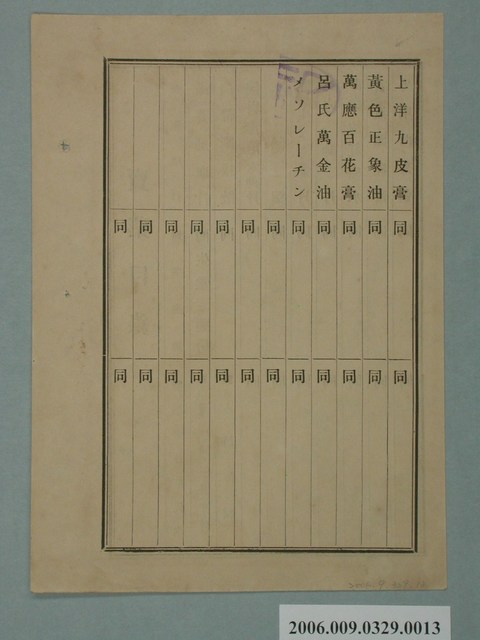 上洋九皮膏
黃色正象油
萬應百花膏
呂氏萬金油
メソレーチン
同 同 同 同 同 同 同 同 同 同 同 同
同 同 同 同 同 同 同 同 同 同 同 同
2006.009.0329.0013